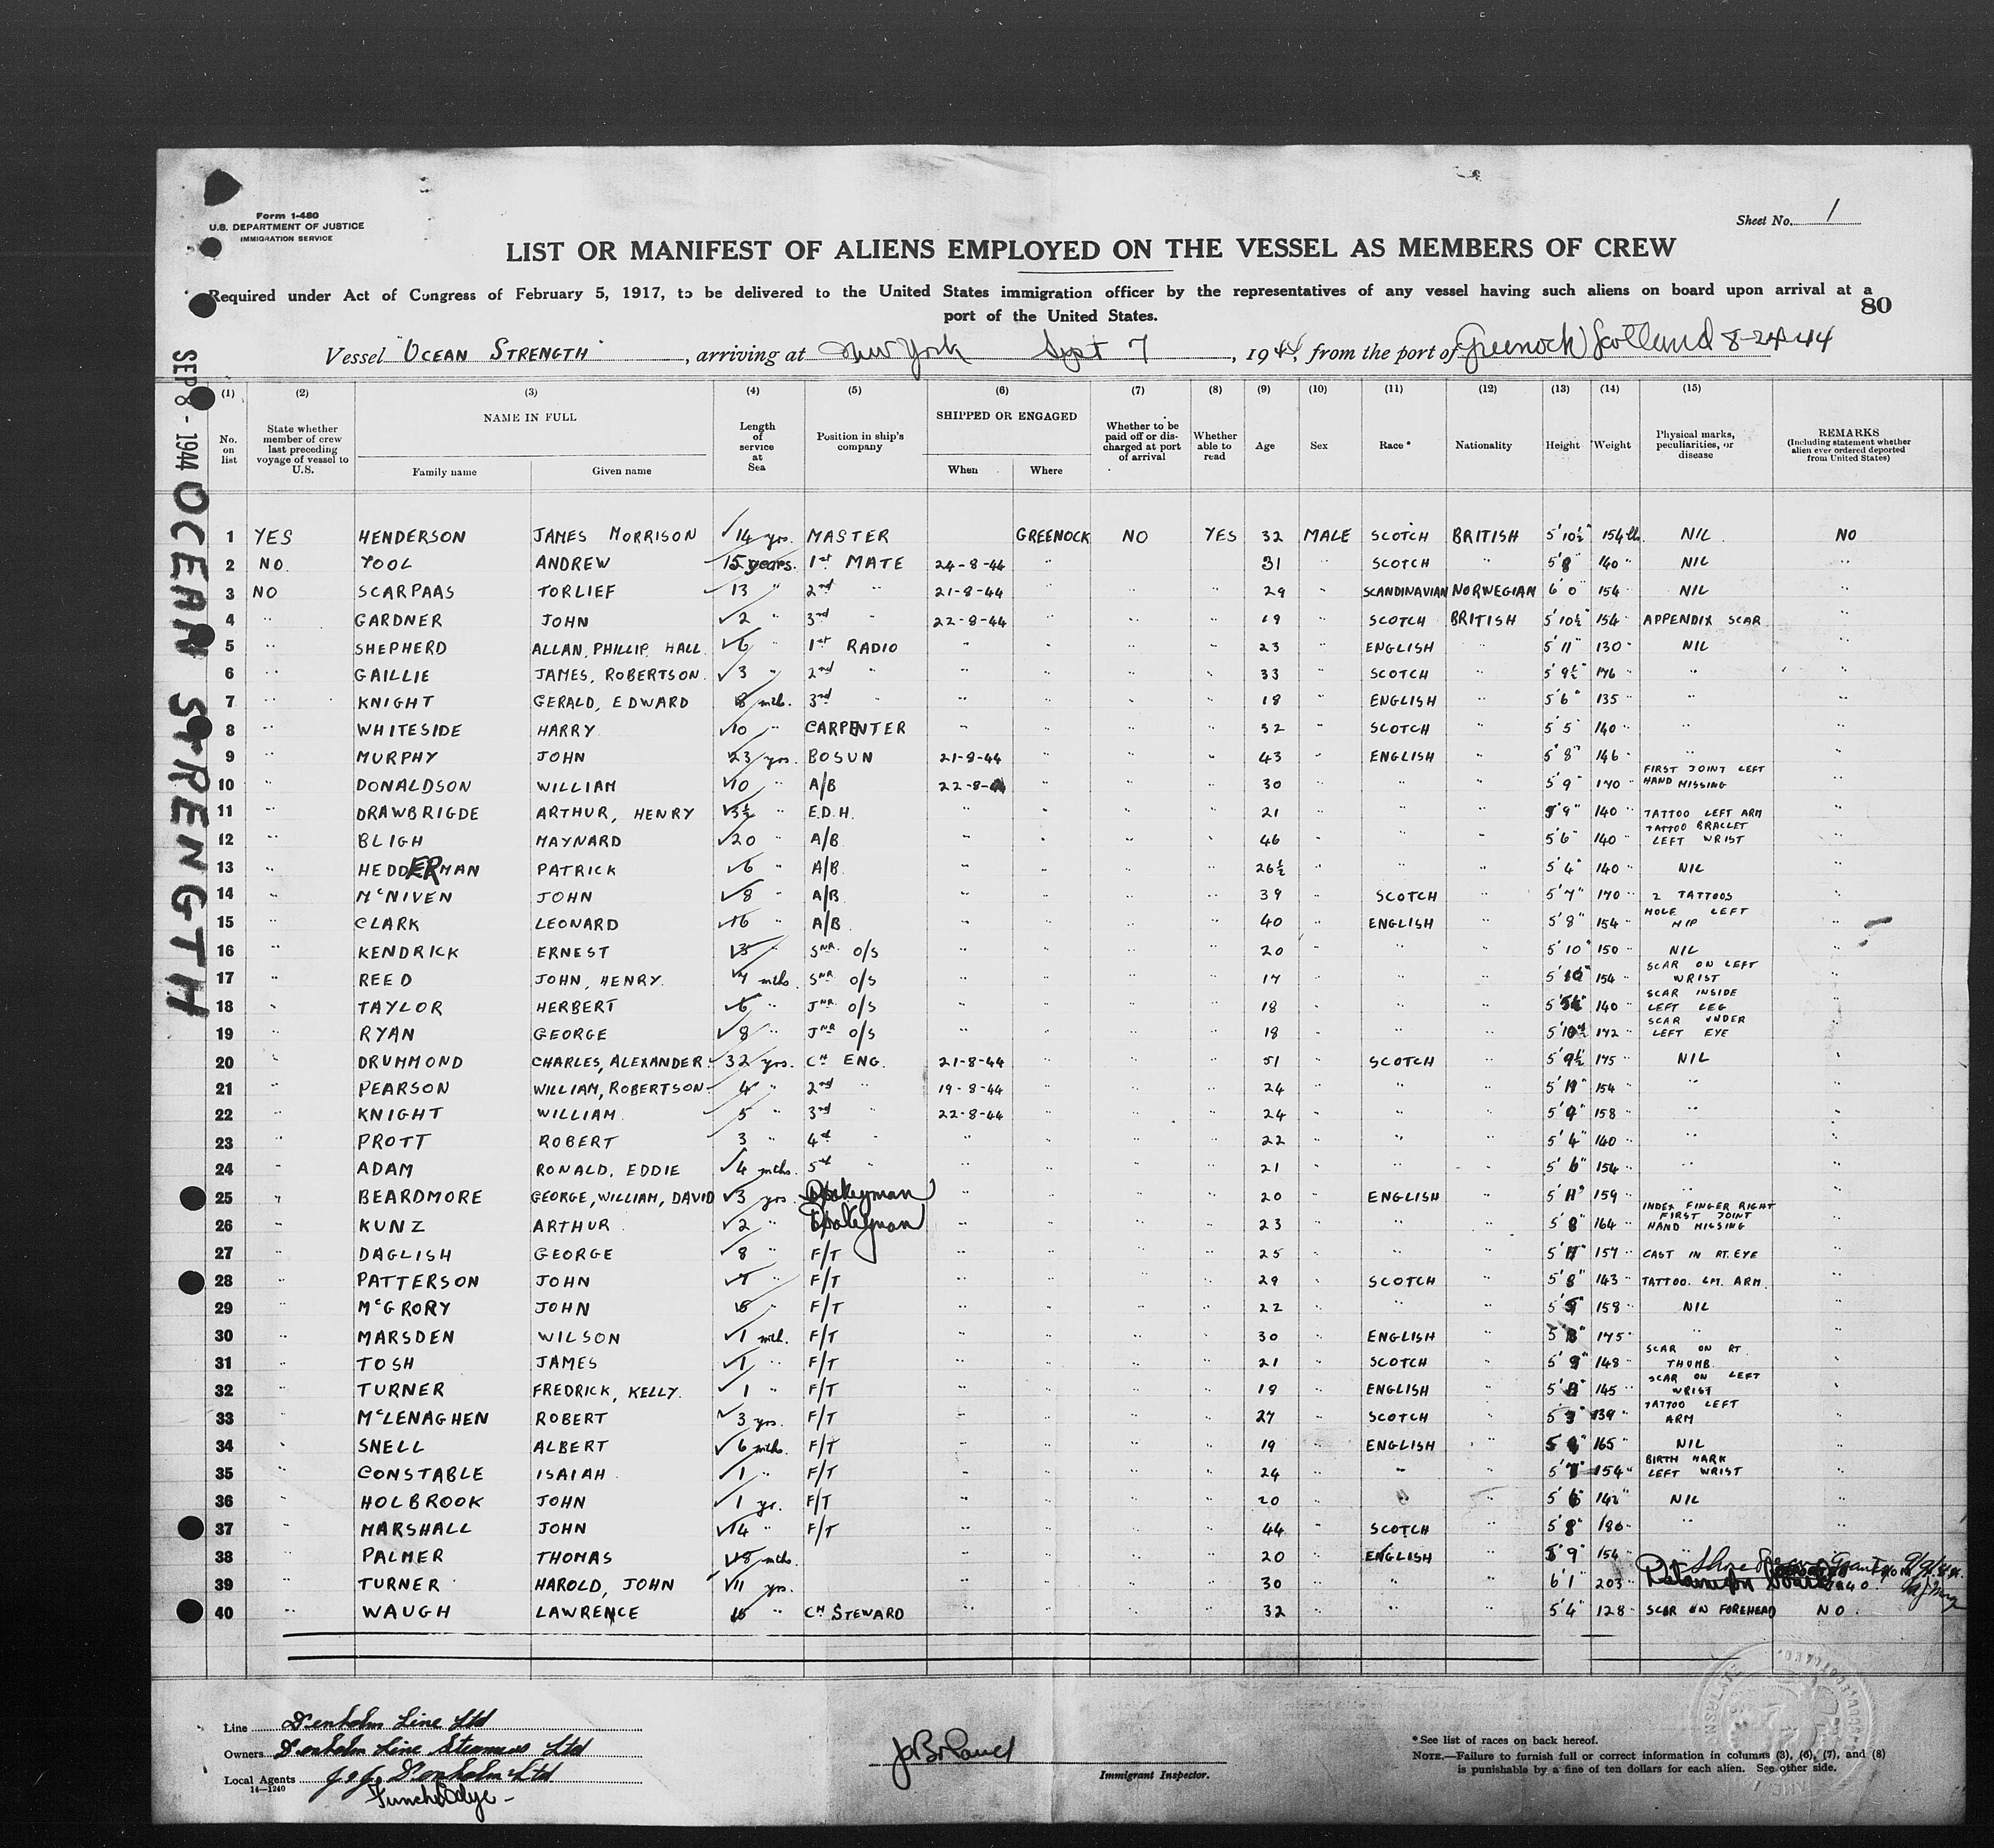 Form 1-480
U.S. DEPARTMENT OF JUSTICE
IMMIGRATION SERVICE
Sheet No. 1
LIST OR MANIFEST OF ALIENS EMPLOYED ON THE VESSEL AS MEMBERS OF CREW
Required under Act of Congress of February 5, 1917, to be delivered to the United States immigration officer by the representatives of any vessel having such aliens on board upon arrival at a
port of the United States.
80
Vessel "OCEAN STRENGTH", arriving at New York Sept 7, 1944, from the port of Greenock Scotland 8-24-44
SEP 8 - 1944 OCEAN STRENGTH
(1) (2) (3) (4) (5) (6) (7) (8) (9) (10) (11) (12) (13) (14) (15)
No. on list | State whether member of crew last preceding voyage of vessel to U.S. | NAME IN FULL Family name Given name | Length of service at Sea | Position in ship's company | SHIPPED OR ENGAGED When Where | Whether to be paid off or discharged at port of arrival | Whether able to read | Age | Sex | Race* | Nationality | Height | Weight | Physical marks, peculiarities, or disease | REMARKS (Including statement whether alien ever ordered deported from United States)
1 YES HENDERSON JAMES MORRISON 14 yrs. MASTER GREENOCK NO YES 32 MALE SCOTCH BRITISH 5'10½" 154 lb. NIL NO
2 NO. TOOL ANDREW 15 years. 1st MATE 24-8-44 " 31 " SCOTCH " 5'8" 140 " NIL "
3 NO SCARPAAS TORLIEF 13 " 2nd " 21-8-44 " " " 29 " SCANDINAVIAN NORWEGIAN 6'0" 154 " NIL "
4 " GARDNER JOHN 2 " 3rd " 22-8-44 " " " 19 " SCOTCH BRITISH 5'10½" 154 " APPENDIX SCAR "
5 " SHEPHERD ALLAN, PHILLIP, HALL 6 " 1st RADIO " " " " 23 " ENGLISH " 5'11" 130 " NIL "
6 " GAILLIE JAMES, ROBERTSON. 3 " 2nd " " " " " 33 " SCOTCH " 5'9½" 176 " " "
7 " KNIGHT GERALD, EDWARD 8 mth. 3rd " " " " " 18 " ENGLISH " 5'6" 135 " " "
8 " WHITESIDE HARRY 10 " CARPENTER " " " " 32 " SCOTCH " 5'5" 140 " " "
9 " MURPHY JOHN 23 yrs. BOSUN 21-8-44 " " " 43 " ENGLISH " 5'8" 146 " " "
10 " DONALDSON WILLIAM 10 " A/B 22-8-44 " " " 30 " " " 5'9" 170 " FIRST JOINT LEFT HAND MISSING "
11 " DRAWBRIGDE ARTHUR, HENRY 3½ " E.D.H. " " " " 21 " " " 5'9" 140 " TATTOO LEFT ARM "
12 " BLIGH MAYNARD 20 " A/B " " " " 46 " " " 5'6" 140 " TATTOO BRACLET LEFT WRIST "
13 " HEDDERMAN PATRICK 6 " A/B. " " " " 26½ " " " 5'4" 140 " NIL "
14 " McNIVEN JOHN 8 " A/B. " " " " 39 " SCOTCH " 5'7" 170 " 2 TATTOOS "
15 " CLARK LEONARD 16 " A/B. " " " " 40 " ENGLISH " 5'8" 154 " MOLE LEFT HIP "
16 " KENDRICK ERNEST 3 " SNR. O/S " " " " 20 " " " 5'10" 150 " NIL "
17 " REED JOHN, HENRY. 4 mths. SNR O/S " " " " 17 " " " 5'10" 154 " SCAR ON LEFT WRIST "
18 " TAYLOR HERBERT 6 " JNR O/S " " " " 18 " " " 140 " SCAR INSIDE LEFT LEG "
19 " RYAN GEORGE 8 " JNR O/S " " " " 18 " " " 5'10½" 172 " SCAR UNDER LEFT EYE "
20 " DRUMMOND CHARLES, ALEXANDER 32 yrs. CH ENG. 21-8-44 " " " 51 " SCOTCH " 5'9½" 175 " NIL "
21 " PEARSON WILLIAM, ROBERTSON 4 " 2nd " 19-8-44 " " " 24 " " " 5'11" 154 " " "
22 " KNIGHT WILLIAM. 5 " 3rd " 22-8-44 " " " 24 " " " 5'9" 158 " " "
23 " PROTT ROBERT 3 " 4th " " " " " 22 " " " 5'4" 140 " " "
24 " ADAM RONALD, EDDIE 4 mths. 5th " " " " " 21 " " " 5'6" 154 " " "
25 " BEARDMORE GEORGE, WILLIAM, DAVID 3 yrs. " " " " 20 " ENGLISH " 5'11" 159 " "
26 " KUNZ ARTHUR 2 " " " " " 23 " " " 5'8" 164 " INDEX FINGER RIGHT FIRST JOINT HAND MISSING "
27 " DAGLISH GEORGE 8 " F/T " " " " 25 " " " 157 " CAST IN RT. EYE "
28 " PATTERSON JOHN 7 " F/T " " " " 29 " SCOTCH " 5'8" 143 " TATTOO. ARM. "
29 " McGRORY JOHN " F/T " " " " 22 " " " 158 " NIL "
30 " MARSDEN WILSON 1 mth. F/T " " " " 30 " ENGLISH " 5'8" 175 " " "
31 " TOSH JAMES 1 " F/T " " " " 21 " SCOTCH " 5'9" 148 " SCAR ON RT. THUMB. "
32 " TURNER FREDRICK, KELLY. 1 " F/T " " " " 19 " ENGLISH " 145 " SCAR ON LEFT WRIST "
33 " McLENAGHEN ROBERT 3 yrs. F/T " " " " 27 " SCOTCH " 139 " TATTOO LEFT ARM "
34 " SNELL ALBERT 6 mths. F/T " " " " 19 " ENGLISH " 165 " NIL "
35 " CONSTABLE ISAIAH. 1 " F/T " " " " 24 " " " 5'7" 154 " BIRTH MARK LEFT WRIST "
36 " HOLBROOK JOHN 1 yr. F/T " " " " 20 " " " 5'6" 142 " NIL "
37 " MARSHALL JOHN 14 " F/T " " " " 44 " SCOTCH " 5'8" 180 " " "
38 " PALMER THOMAS 18 mths. " " " " 20 " ENGLISH " 5'9" 154 "
39 " TURNER HAROLD, JOHN 11 yrs. " " " " 30 " " " 6'1" 203 "
40 " WAUGH LAWRENCE " CH STEWARD " " " " 32 " " " 5'4" 128 " SCAR ON FOREHEAD NO.
Line Denholm Line Ltd
Owners Denholm Line Steamers Ltd
Local Agents J & J Denholm Ltd
14—1240
Funch Edye -
Immigrant Inspector.
*See list of races on back hereof.
NOTE.—Failure to furnish full or correct information in columns (3), (6), (7), and (8)
is punishable by a fine of ten dollars for each alien. See other side.